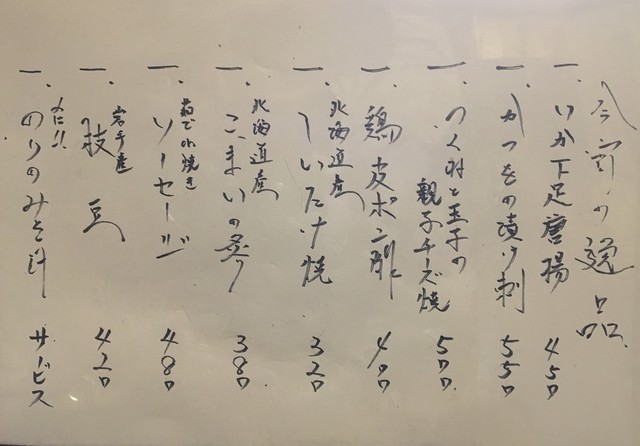 今宵の逸品
一、いか下足唐揚 450
一、かつをの漬け刺 550
一、つくねと玉子の
親子チーズ焼 500
一、鶏皮ポン酢 400
一、北海道産
しいたけ焼 320
一、北海道産
こまいの炙り 380
一、茹でor焼き
ソーセージ 480
一、岩手産
枝豆 420
一、〆に!!
のりのみそ汁 サービス